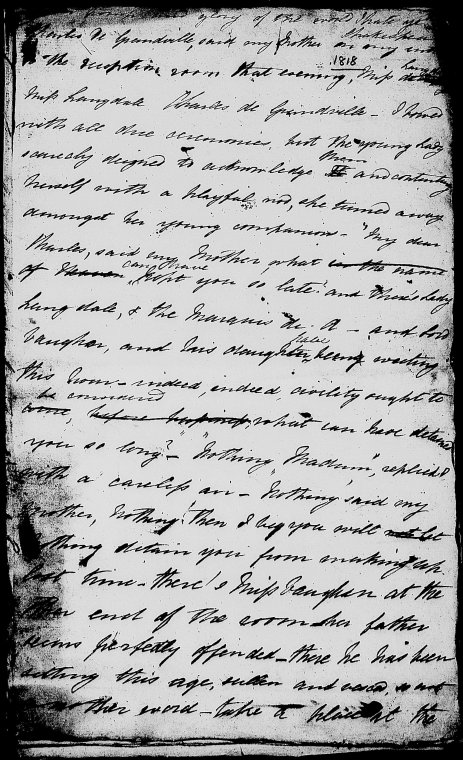 glory of the word, hate
Shakespeare
Charles de Grandville, said my Mother on my
1818
the reception room that evening, Miss
Miss Langdale Charles de Grandville - I bowed
with all due ceremonies, but the young lady
them
scarcely deigned to acknowledge it and contenting
herself with a playful nod, she turned away
amongst her young companions - "My dear
Charles, said my Mother, what in the name
can have
of Heaven, kept you so late! and there's Lady
Langdale, & the Marquis de A - and Lord
have
Vaughan, and his daughter, been waiting
this hour - indeed, indeed civility ought to
be considered
come, before business, what can have detained
you so long? - "Nothing Madam", replied I
with a careless air - Nothing said my
Mother, Nothing! then I beg you will not let
nothing detain you from making up
lost time - there's Miss Vaughan at the
other end of the room her father
seems perfectly offended - there he has been
sitting this age, sullen and vexed,
another word - take a place at the